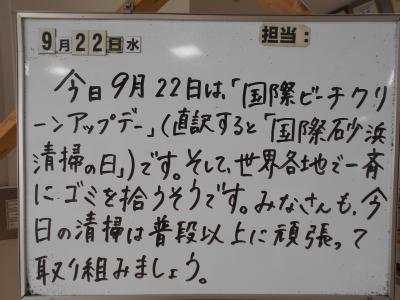 9月22日水 担当:
今日9月22日は、「国際ビーチクリ
ーンアップデー」(直訳すると「国際砂浜
清掃の日」)です。そして、世界各地で一斉
に、ゴミを拾うそうです。みなさんも、今
日の清掃は普段以上に頑張って
取り組みましょう。